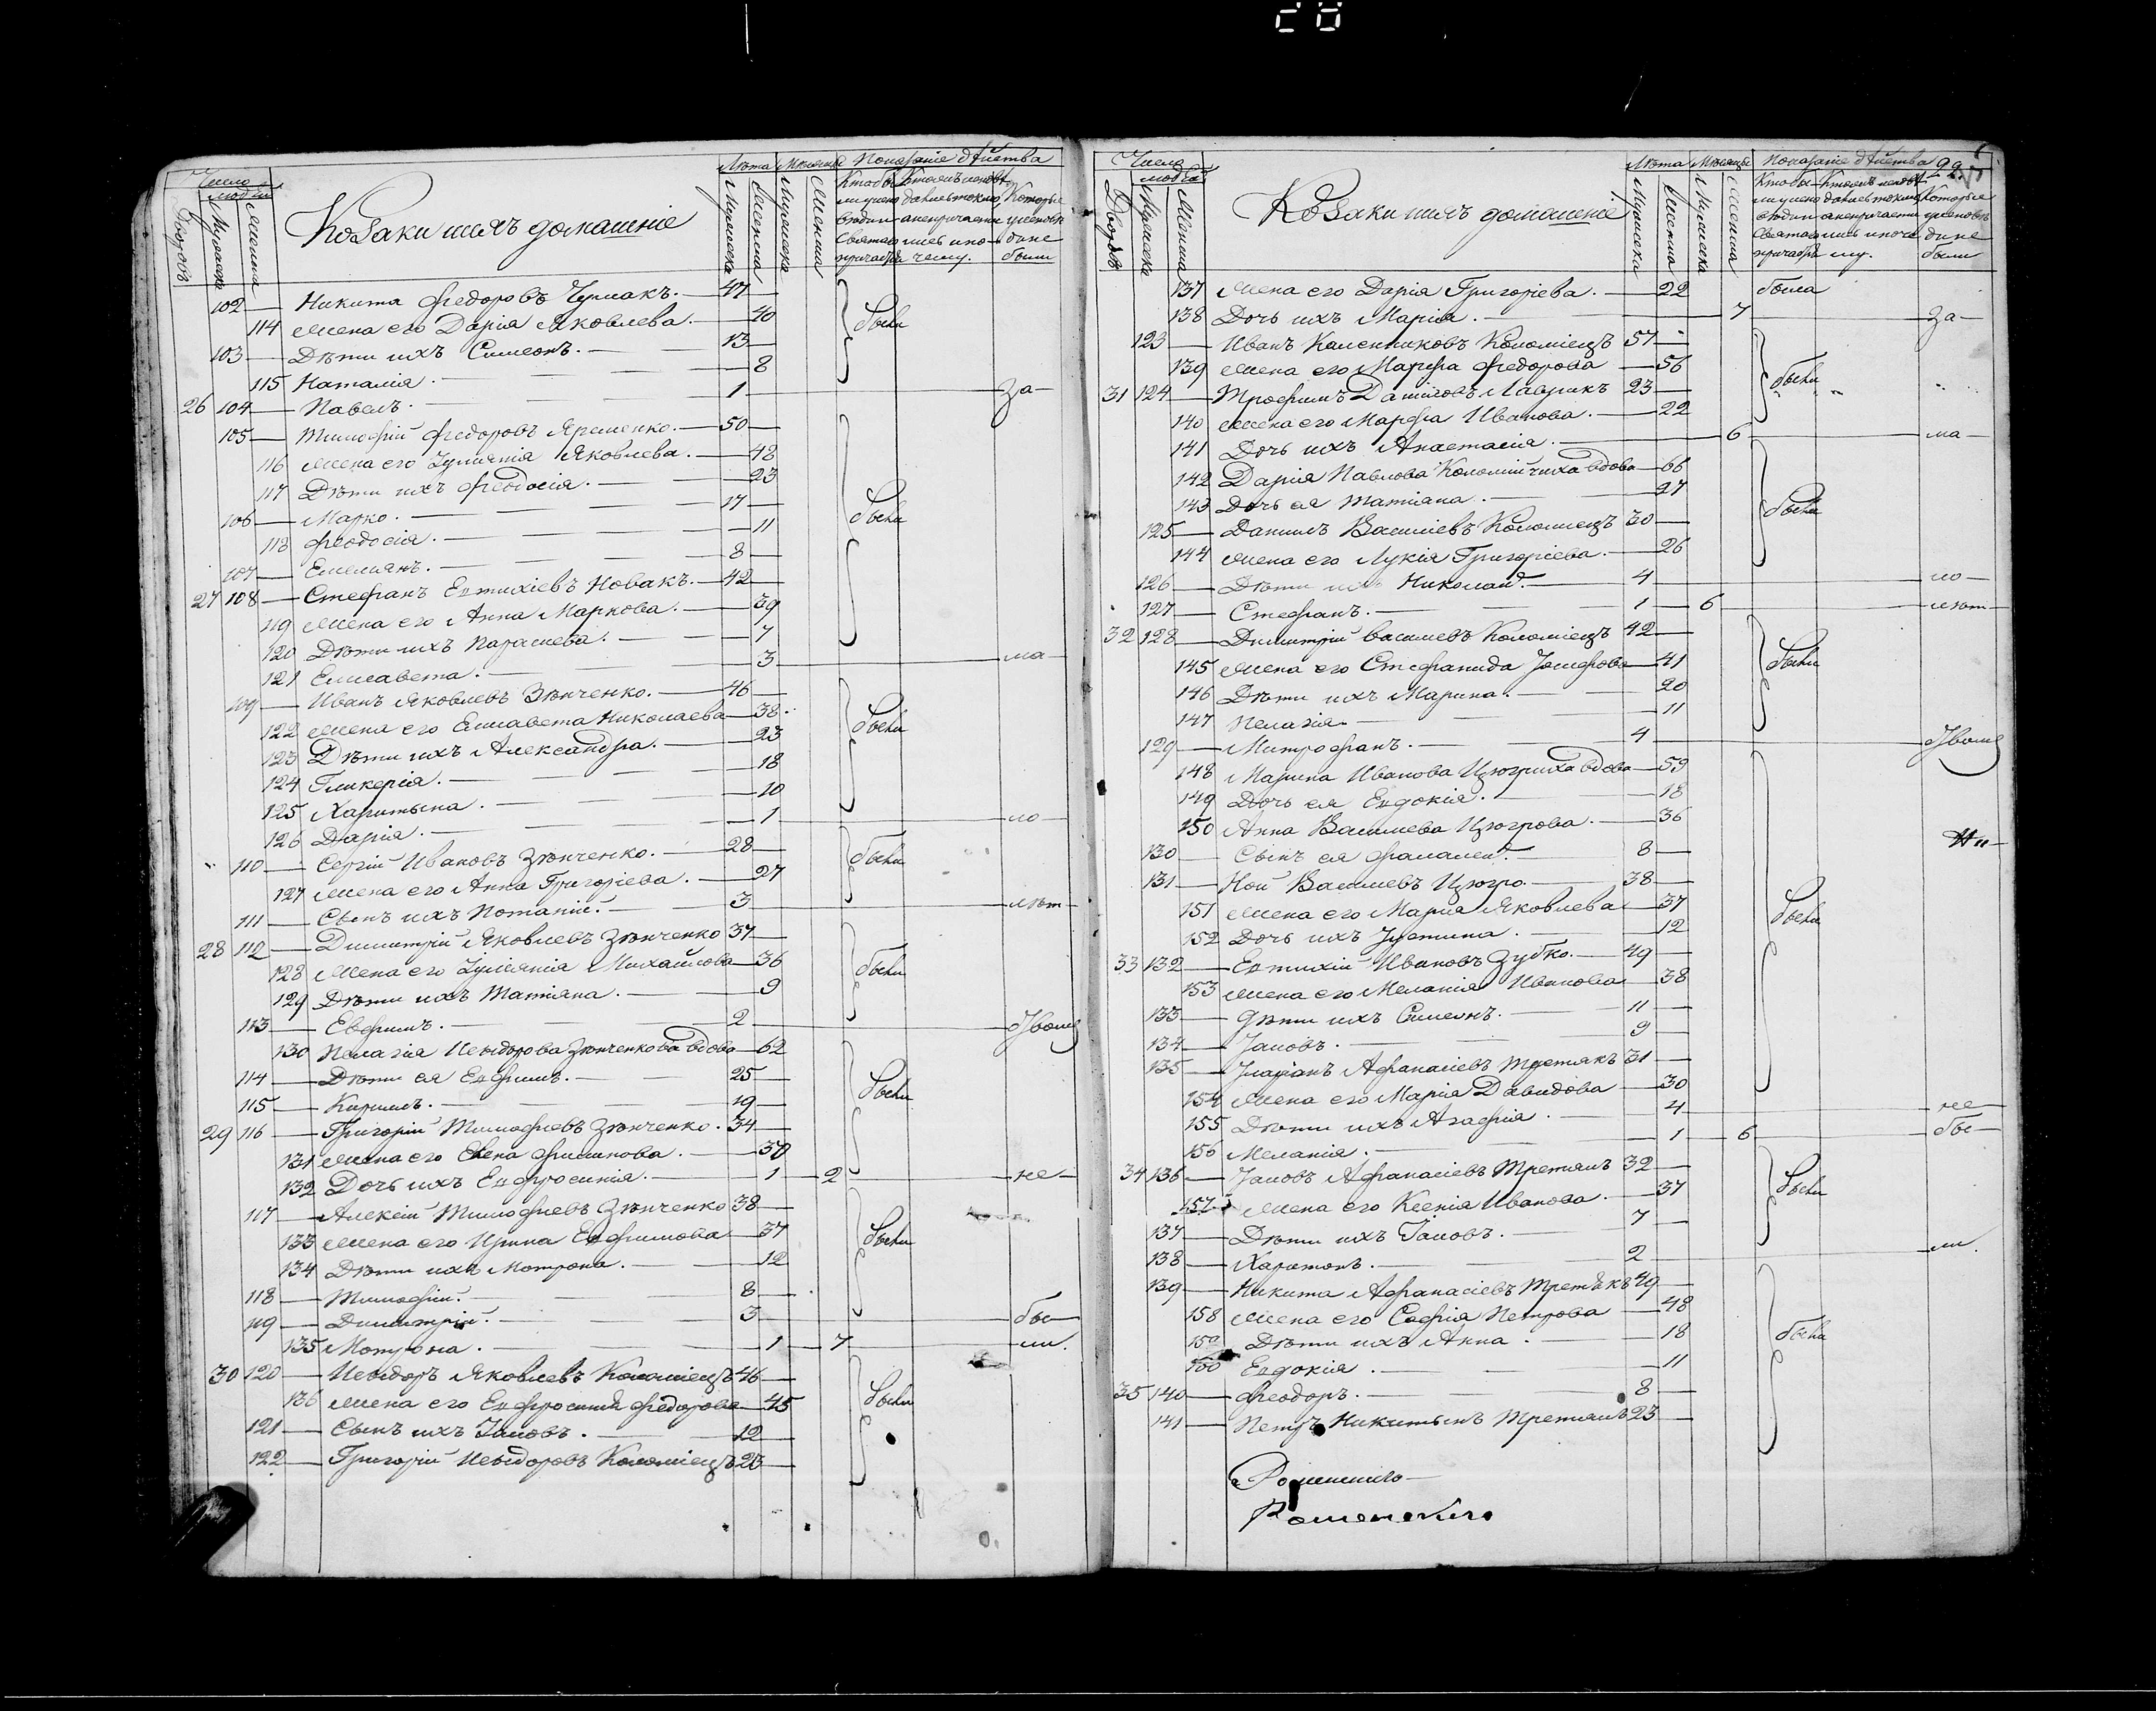 Число
людей
Дворовъ
Мужеска
Женска
Козаки и ихъ домашніе
Лѣта
Мѣсяцы
Мужеска
Женска
Мужеска
Женска
Показаніе дѣйства
102 — Никита Федоровъ Чумакъ. — 47 —
114 Жена его Дарія Яковлева. — 40 были
103 — Дѣти ихъ Симеонъ. — 13 —
115 Наталія. — 8
26 104 — Павелъ. — 1 — за —
105 — Тимофій Федоровъ Яременко. — 50 —
116 Жена его Іуліянія Яковлева. — 48
117 Дѣти ихъ Феодосія. — 23
106 — Марко. — 17 — были
118 Феодосія. — 11
107 — Емеліянъ. — 8 —
27 108 — Стефанъ Евтихіевъ Новакъ. — 42 —
119 Жена его Анна Маркова. — 39
120 Дѣти ихъ Параскева. — 7
121 Елисавета. — 3 — ма —
109 — Иванъ Яковлевъ Зѣнченко. — 46 —
122 Жена его Елисавета Николаева — 38 были
123 Дѣти ихъ Александра. — 23
124 Гликерія. — 18
125 Харитына. — 10
126 Дарія. — 1 — ло —
110 — Сергій Ивановъ Зѣнченко. — 28 — были
127 Жена его Анна Григоріева. — 27
111 — Сынъ ихъ Потапій. — 3 — лѣт —
28 112 — Димитрій Яковлевъ Зѣнченко 37 —
128 Жена его Іуліянія Михайлова — 36 были
129 Дѣти ихъ Татіяна. — 9
113 — Евфимъ. — 2 —
130 Пелагія Исидорова Зѣнченкова вдова — 62
114 — Дѣти ея Евфимъ. — 25 — были
115 — Кирилъ. — 19 —
29 116 — Григорій Тимофіевъ Зѣнченко. 34 —
131 Жена его Елена Филипова. — 30
132 Дочь ихъ Евфросинія. — 1 — 2 — не —
117 — Алексій Тимофіевъ Зѣнченко 38 —
133 Жена его Ирина Евфимова — 37 были
134 Дѣти ихъ Мотрона. — 12
118 — Тимофій. — 8 —
119 — Димитрій. — 3 — бы —
135 Мотрона. — 1 — 7 — ли.
30 120 — Исидоръ Яковлевъ Коломіецъ 46 —
136 Жена его Евфросинія Федорова — 45 были
121 — Сынъ ихъ Іаковъ. — 12 —
122 — Григорій Исидоровъ Коломіецъ 23 —
Число
людей
Дворовъ
Мужеска
Женска
Козаки и ихъ домашніе
Лѣта
Мѣсяцы
Мужеска
Женска
Мужеска
Женска
Показаніе дѣйства
137 Жена его Дарія Григоріева. — 22 была
138 Дочь ихъ Марія. — 7 — за —
123 — Иванъ Калениковъ Коломіецъ 57 —
139 Жена его Марфа Федорова — 56 были
31 124 — Трофимъ Даниловъ Лаврикъ 23 —
140 Жена его Марфа Иванова. — 22
141 Дочь ихъ Анастасія. — 6 — ма —
142 Дарія Павлова Коломійчиха вдова — 66
143 Дочь ея Татіяна. — 27 были
125 — Данилъ Василіевъ Коломіецъ 30 —
144 Жена его Лукія Григоріева. — 26
126 — Дѣти ихъ Николай. — 4 — ло —
127 — Стефанъ. — 1 — 6 — лѣт —
32 128 — Димитрій Василевъ Коломіецъ 42 —
145 Жена его Стефанида Іосифова — 41 были
146 Дѣти ихъ Марина. — 20
147 Пелагія — 11
129 — Митрофанъ. — 4 —
148 Марина Иванова Цюгриха вдова — 59
149 Дочь ея Евдокія. — 18
150 Анна Василіева Цюгрова. — 36
130 — Сынъ ея Фалалей. — 8 —
131 — Ной Василевъ Цюгро. — 38 —
151 Жена его Марія Яковлева — 37 были
152 Дочь ихъ Іустина. — 12
33 132 — Евтихій Ивановъ Зубко. — 49 —
153 Жена его Меланія Иванова — 38
133 — Дѣти ихъ Симеонъ. — 11 —
134 — Іаковъ. — 9 —
135 — Іларіонъ Афанасіевъ Третякъ 31 —
154 Жена его Марія Давидова — 30
155 Дѣти ихъ Агафія. — 4 — не —
156 Меланія. — 1 — 6 — бы —
34 136 — Іаковъ Афанасіевъ Третякъ 32 —
157 Жена его Ксенія Иванова. — 37 были
137 — Дѣти ихъ Іаковъ. — 7 —
138 — Харитонъ. — 2 — ли.
139 — Никита Афанасіевъ Третякъ 49 —
158 Жена его Софія Петрова — 48
159 Дѣти ихъ Анна. — 18 были
160 Евдокія. — 11
35 140 — Феодоръ. — 8 —
141 — Петръ Никитынъ Третякъ 23 —